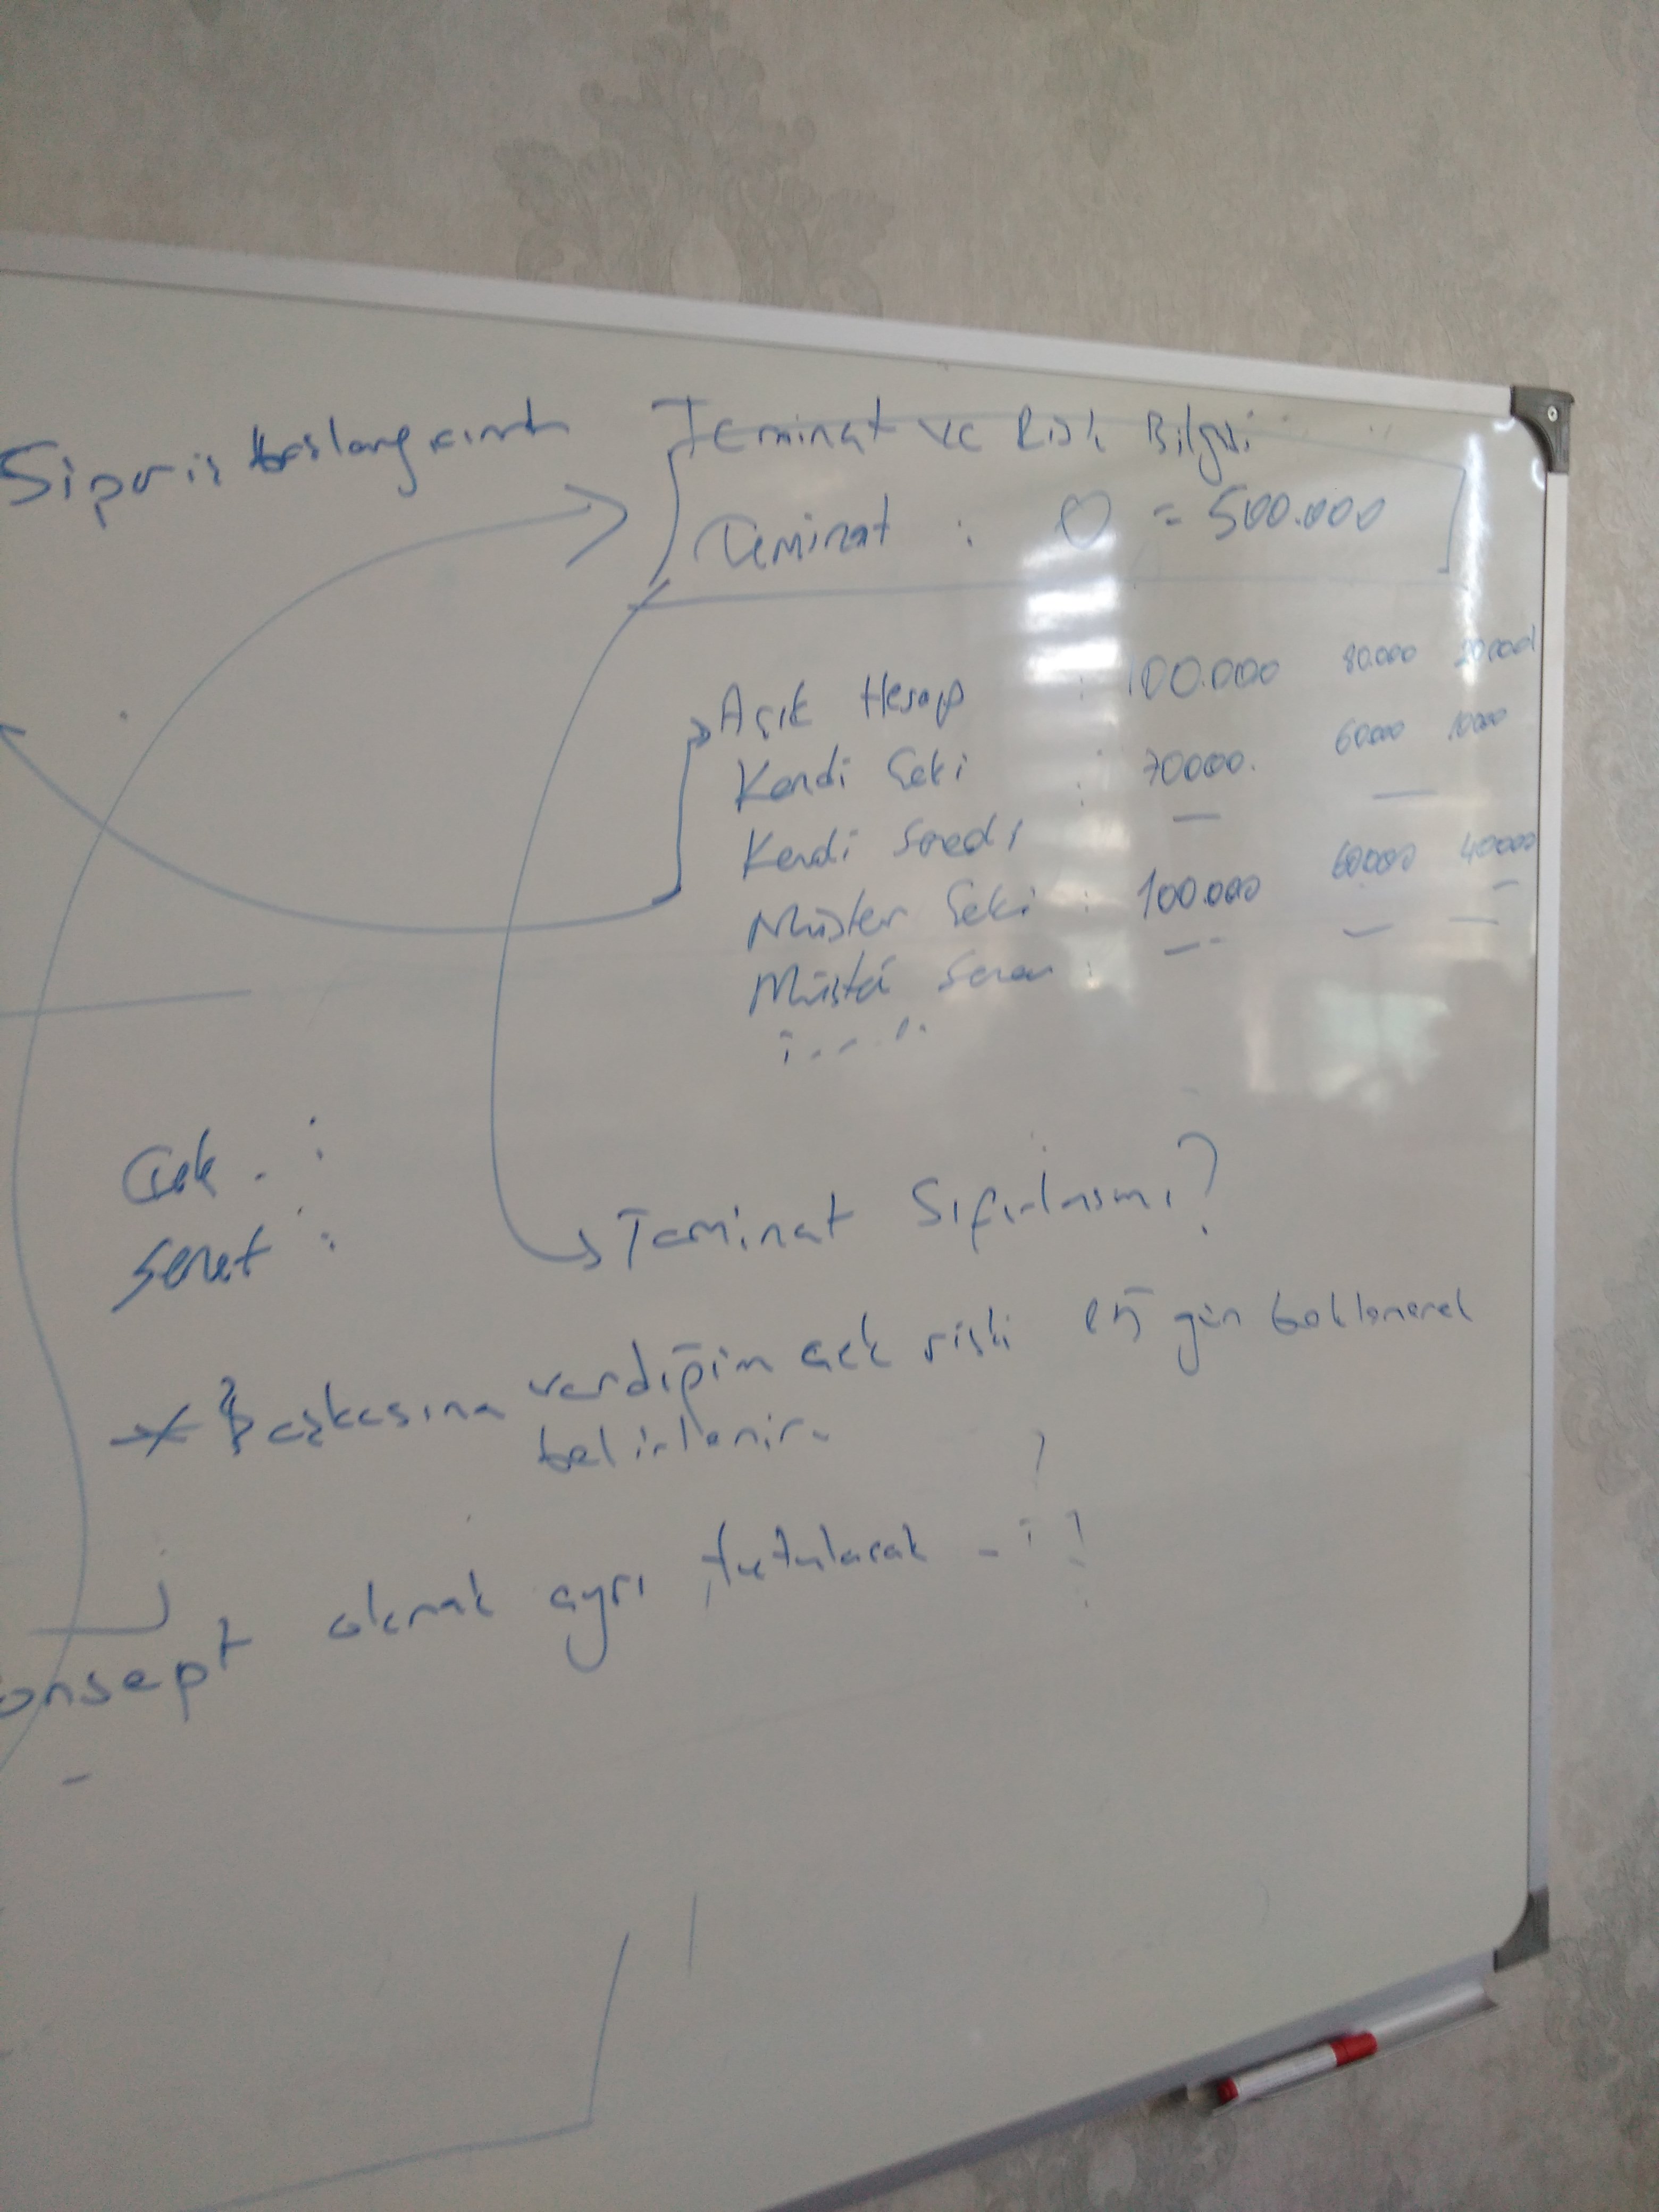 Sipariş başlangıcında
Teminat ve Risk Bilgisi
Teminat : 0 = 500.000
Açık Hesap : 100.000 80.000 20.000
Kendi Çeki : 70000. 60000 10000
Kendi Senedi —  —
Müşteri Çeki : 100.000 60000 40000
Müşteri Senedi : — — —
Çek :
Senet :
Teminat Sıfırlasmı?
* Başkasına verdiğim çek riski gün beklenerek
belirlenir.
onsept olarak ayrı tutulacak